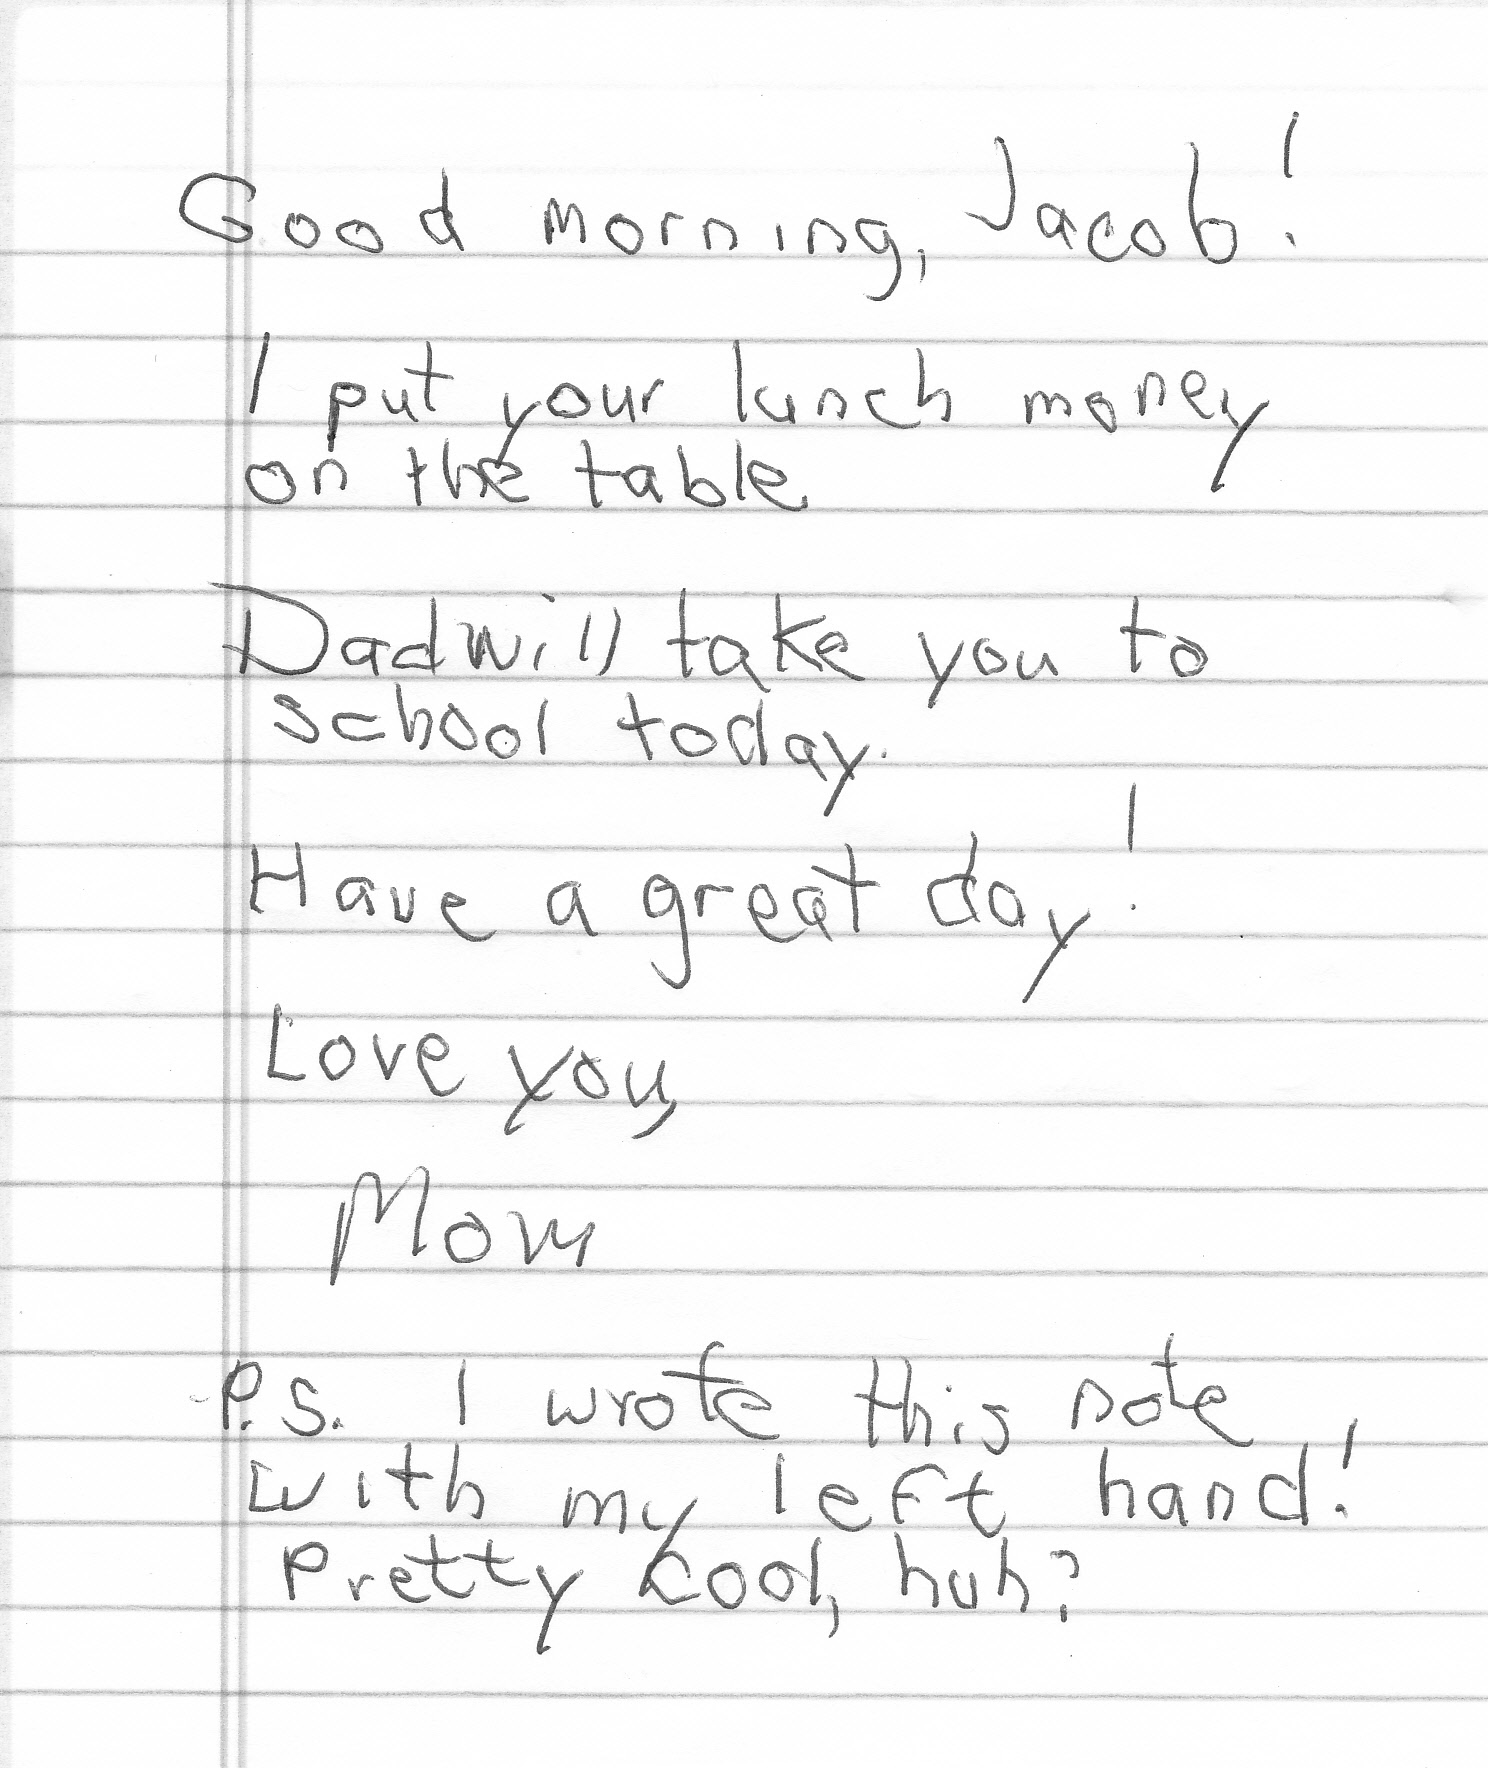 Good morning, Jacob!
I put your lunch money
on the table.
Dad will take you to
school today.
Have a great day!
Love you,
Mom
P.S. I wrote this note
with my left hand!
Pretty cool, huh?